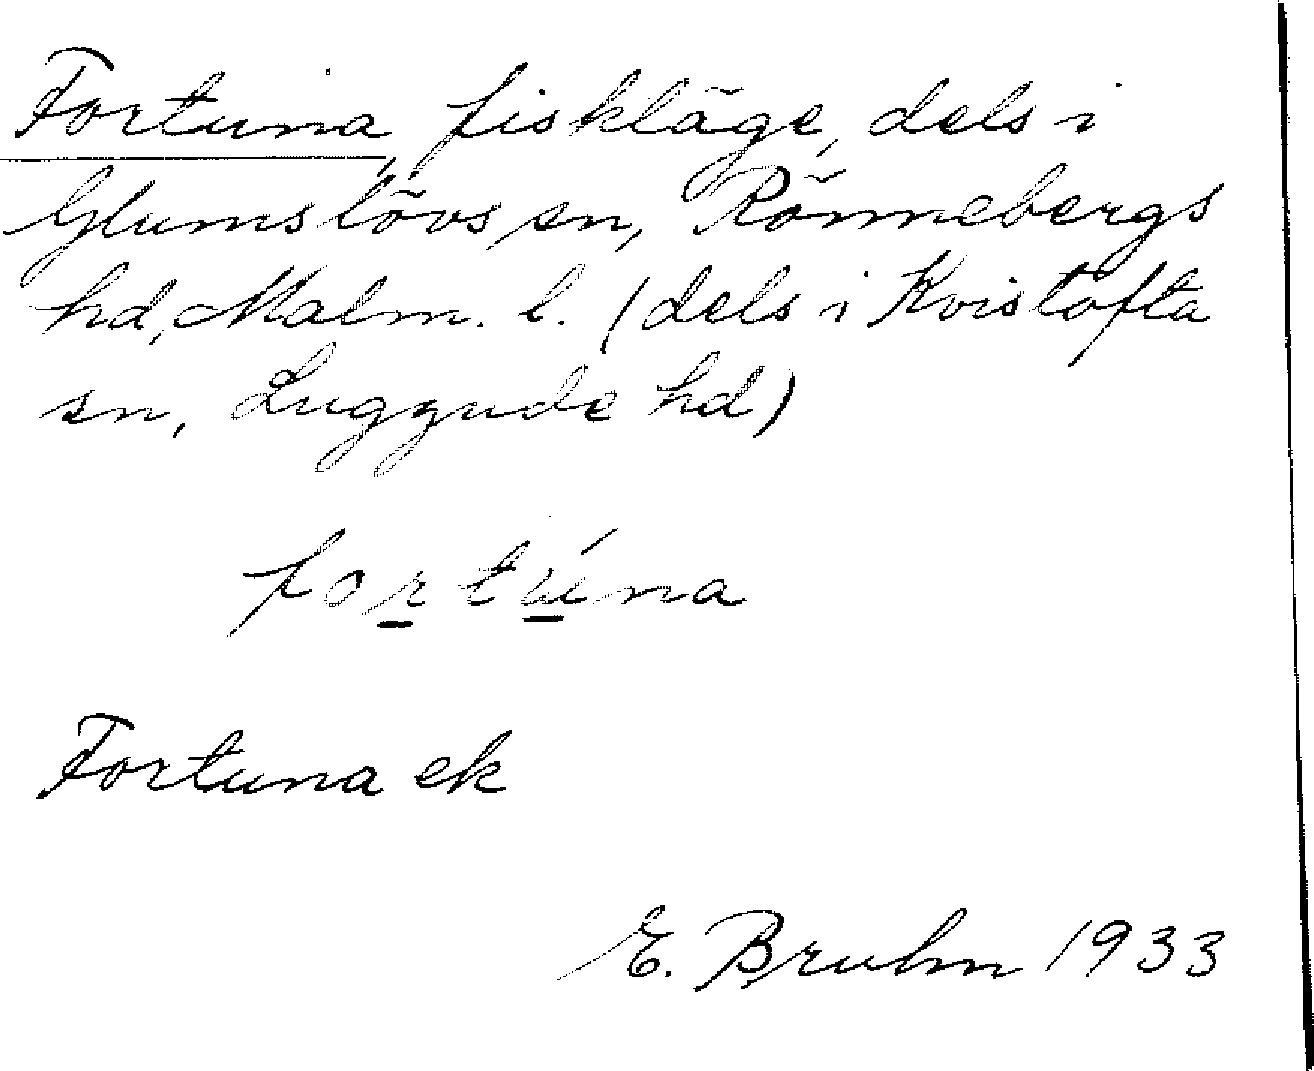 Fortuna, fiskläge, dels i
Glumslövs sn, Rönnebergs
hd, Malm. l. (dels i Kvistofta
sn, Luggude hd)
fortúna
Fortuna ek
E. Bruhn 1933